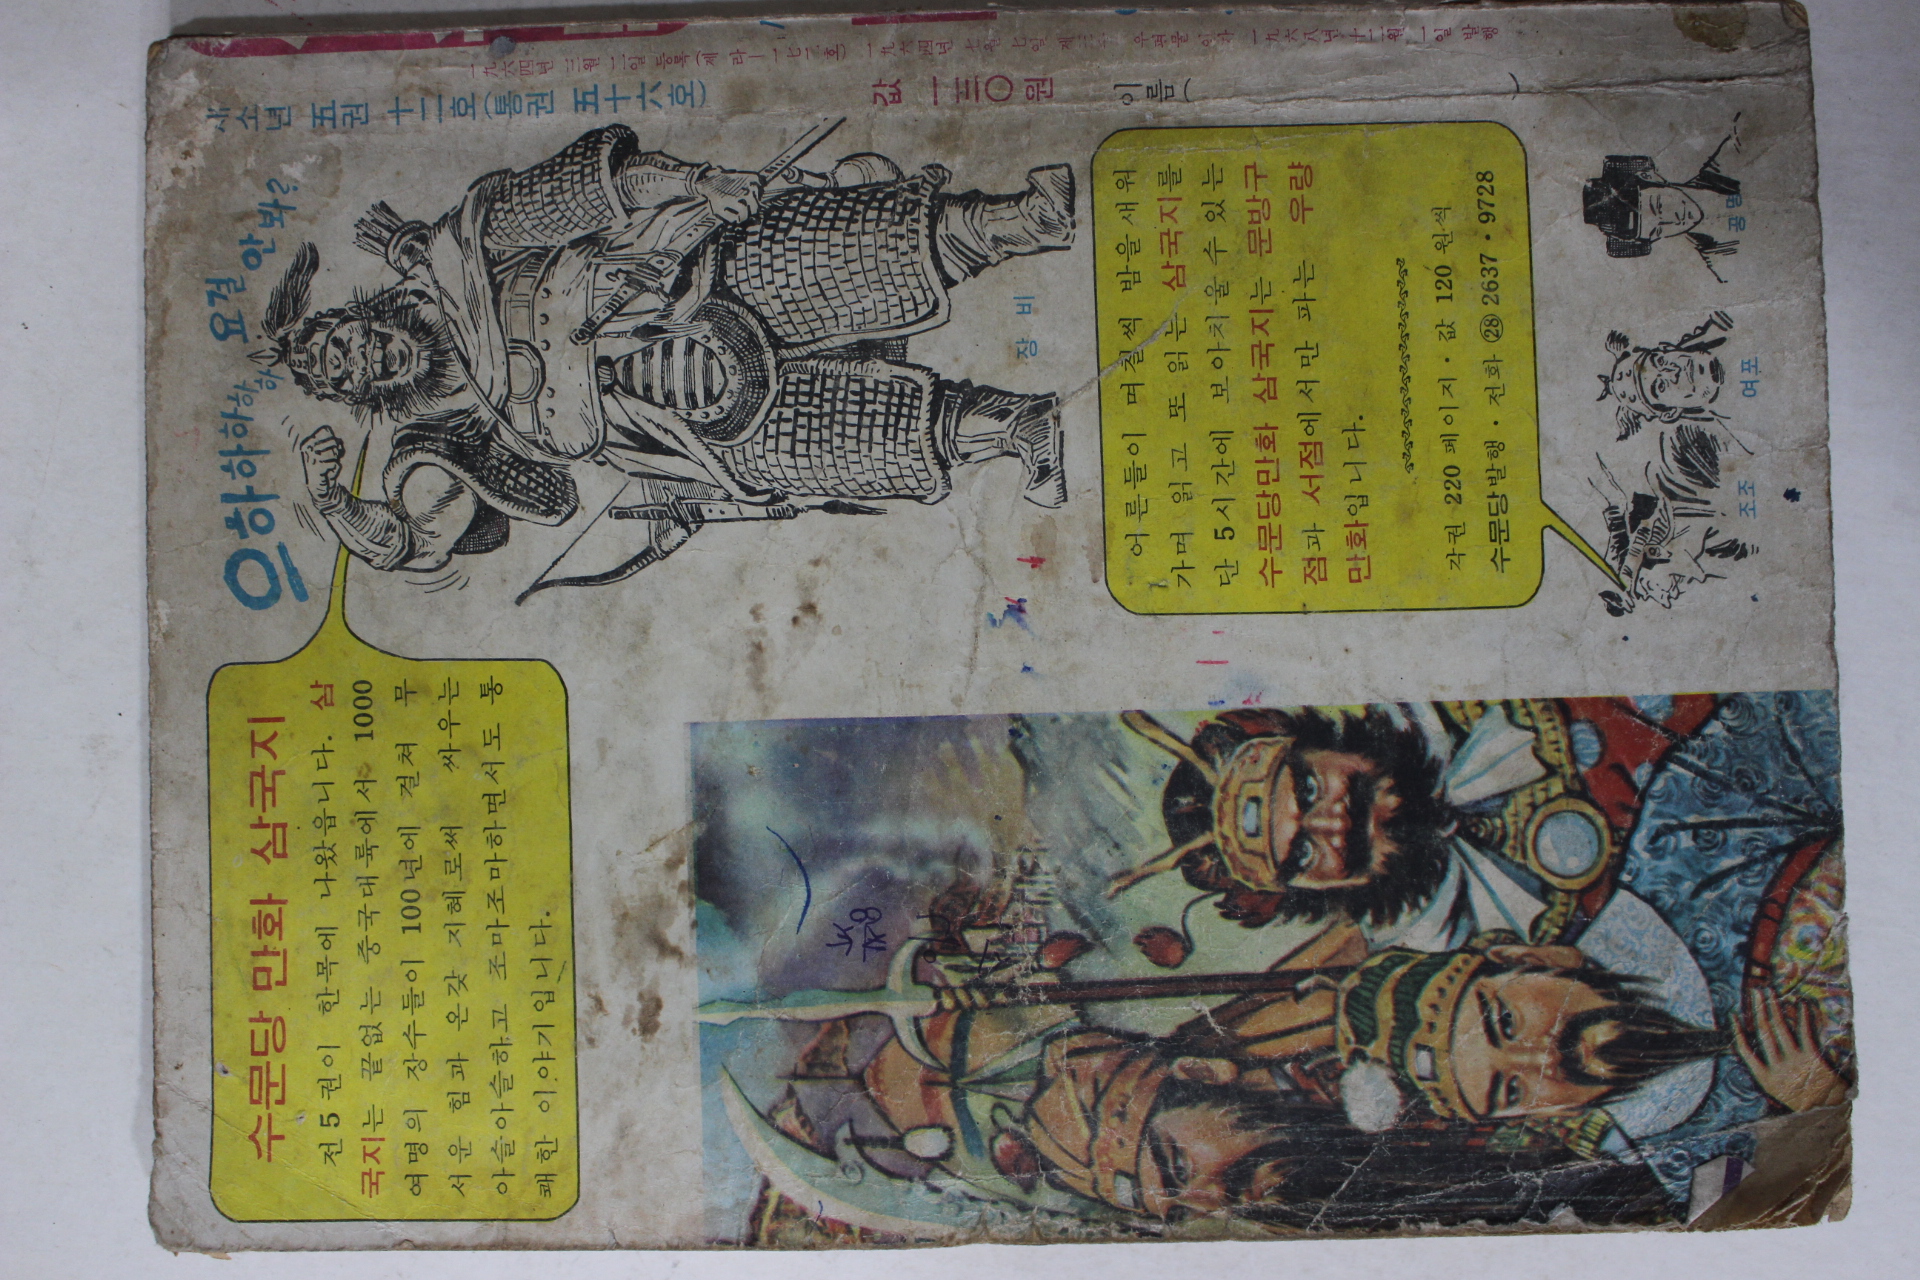 一九六四년 三월 二일 등록 (제 라—一七二호) 一九六四년 七월 七일 제三종 우편물 인가 一九六八년 十二월 一일 발행
새소년 五권 十二호(통권 五十六호)
값 一三〇원
이름(                    )
으하하하하 하하 요걸 안봐?
수문당 만화 삼국지
전5권이 한목에 나왔읍니다. 삼
국지는 끝없는 중국대륙에서 1000
여명의 장수들이 100년에 걸쳐 무
서운 힘과 온갖 지혜로써 싸우는
아슬아슬하고 조마조마하면서도 통
쾌한 이야기입니다.
장비
어른들이 며칠씩 밤을 새워
가며 읽고 또 읽는 삼국지를
단 5시간에 보아치울수 있는
수문당만화 삼국지는 문방구
점과 서점에서만 파는 우량
만화입니다.
각권 220페이지·값 120원씩
수문당발행·전화 ㉘2637·9728
공명
여포
조조